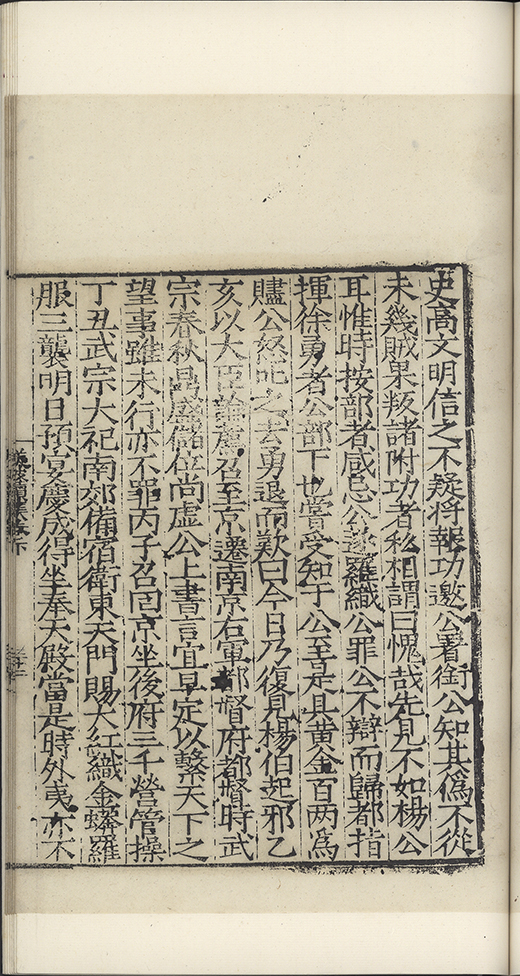 史高文明信之不疑将報功邀公署銜公知其偽不從
未幾賊果叛諸附功者私相謂曰愧哉先見不如楊公
耳惟時按部者咸忌公遂羅織公罪公不辯而歸都指
揮徐勇者公部下也嘗受知于公至是具黄金百两爲
贐公怒叱之去勇退而歎曰今日乃復見楊伯起邪乙
亥以大臣論薦召至京遷南京右軍都督府都督時武
宗春秋鼎盛儲位尚虚公上書言宜早定以繫天下之
望事雖未行亦不罪丙子召囘京坐後府三千營管操
丁丑武宗大祀南郊備宿衛東天門賜大紅織金蟒羅
服三襲明日預宴慶成得坐奉天殿當是時外夷亦不